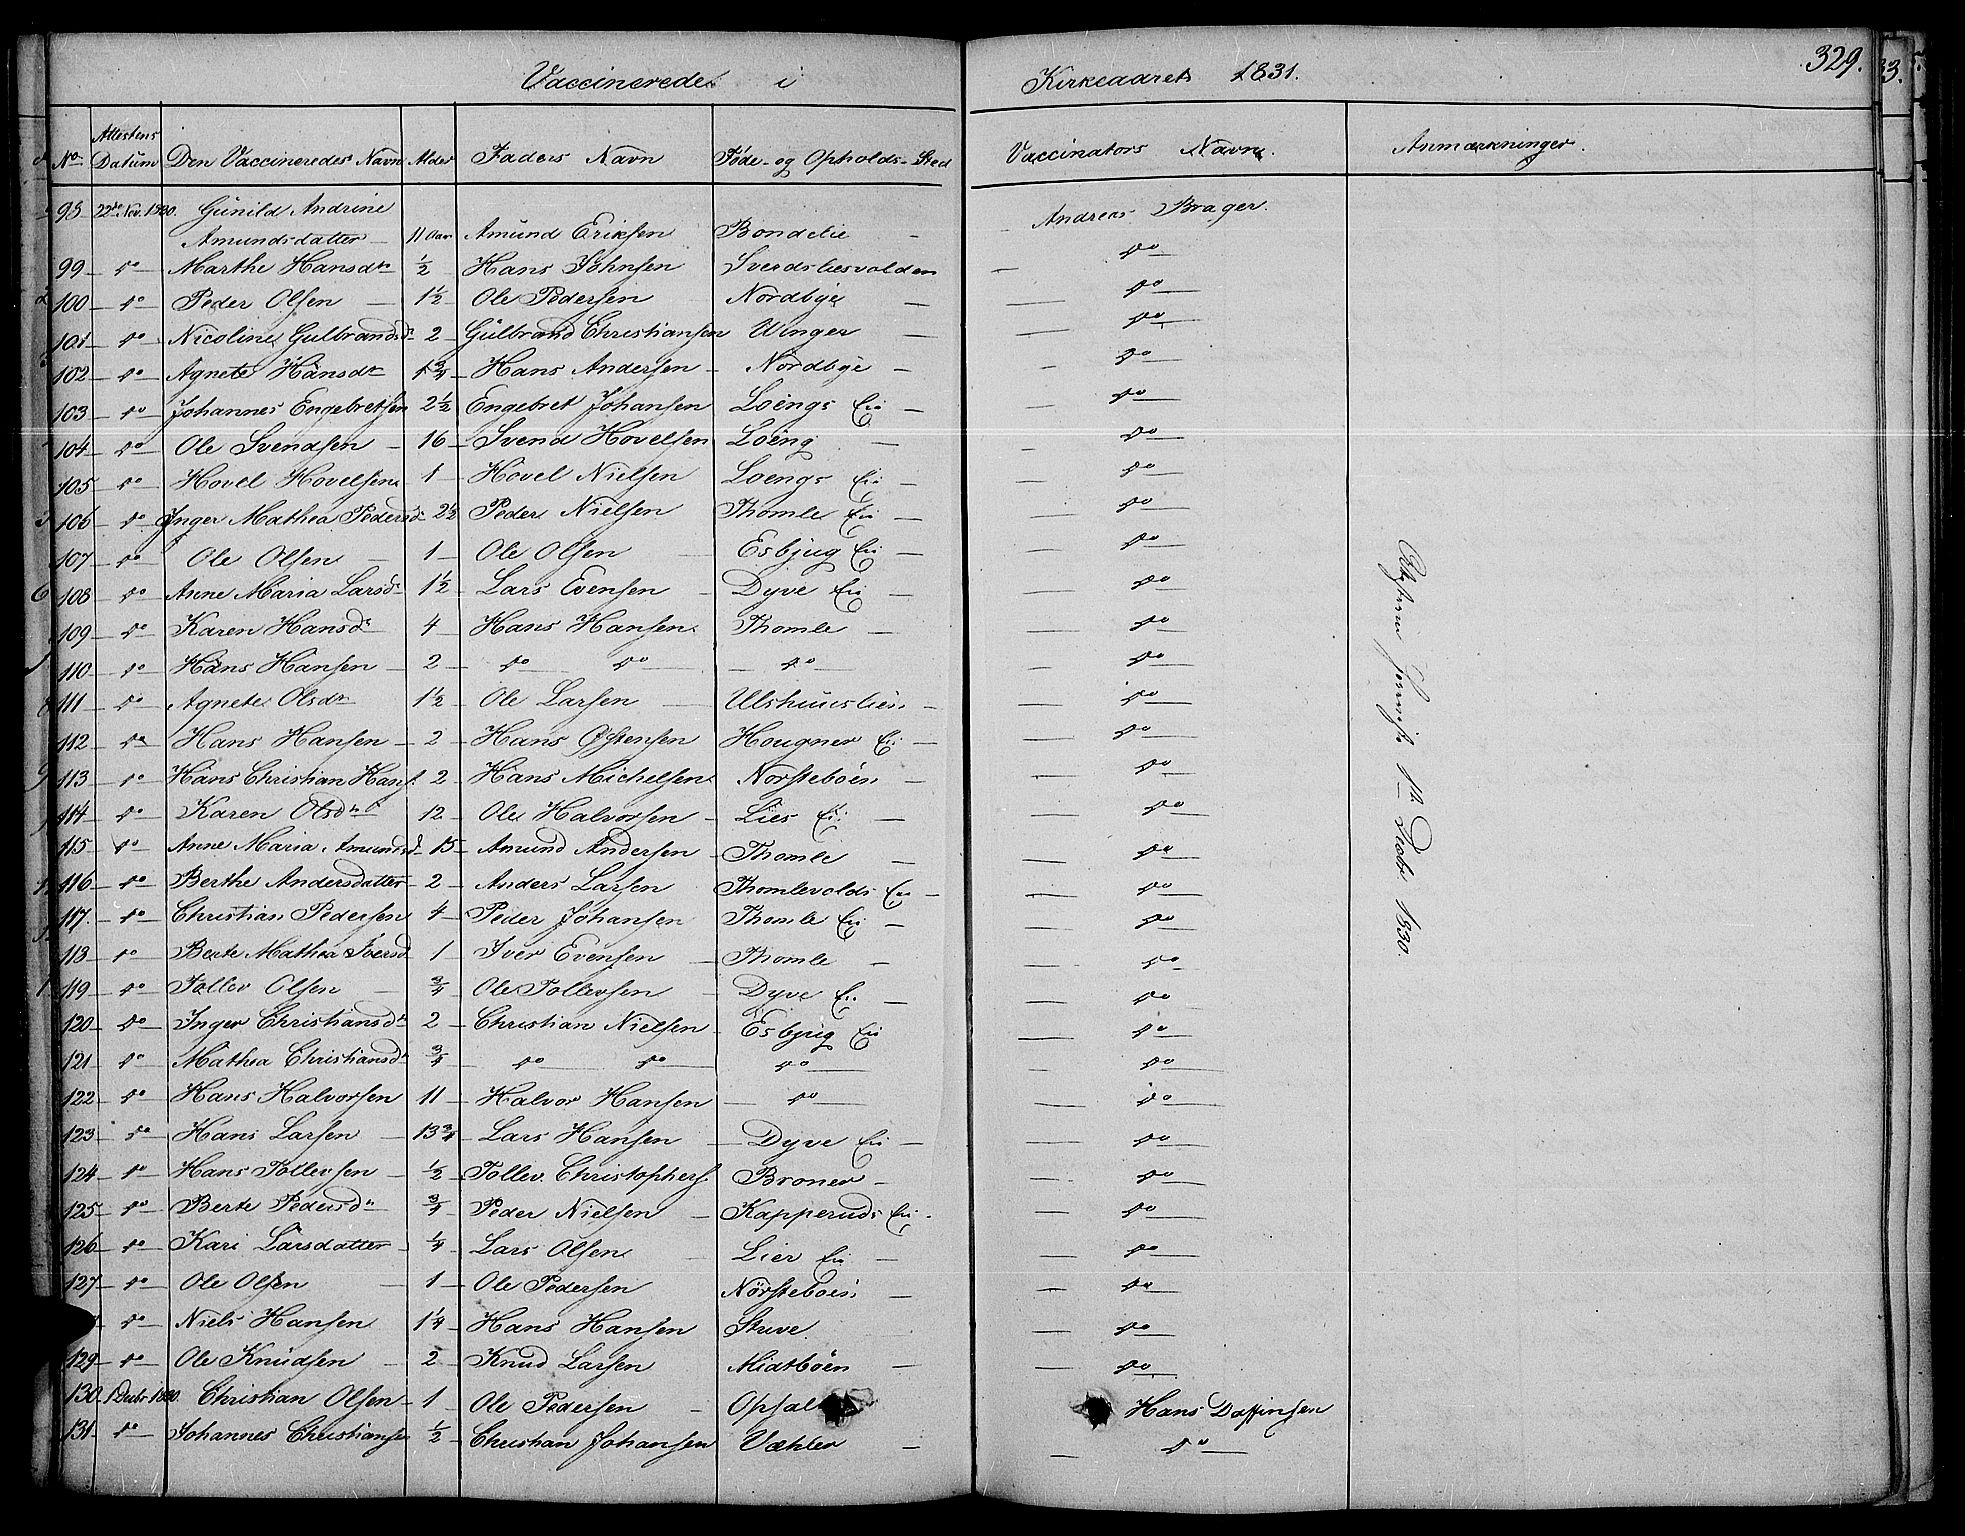 Vaccinerede i Kirkeaaret 1831. 329.
No Attestens Datum Den Vaccineredes Navn Alder Faders Navn Føde- og Opholds-Sted Vaccinators Navn. Anmærkninger.
98 22de Nov. 1830. Gunild Andrine Andreas Brager.
Amundsdatter 11 Aar Amund Eriksen Bondelie do
99 do Marthe Hansdr ½ Hans Johnsen Sverdsliesvolden
100 do Peder Olsen 1½ Ole Pedersen Nordbye do
101 do Nicoline Gulbrandsdr 2 Gulbrand Christiansen Unger do
102 do Agnete Hansdr 1¾ Hans Andersen Nordbye do
103 do Johannes Engebretsen 2½ Engebret Johansen Loengs Ei do
104 do Ole Svendsen 16 Svend Hovelsen Loeng do
105 do Hovel Hovelsen 1 Hovel Nielsen Loengs Ei do
106 do Inger Mathea Pedersd 2½ Peder Nielsen Thomle Ei do
107 do Ole Olsen 1 Ole Olsen Esbjug Ei do
108 do Anne Maria Larsdr 1½ Lars Evensen Dyve Ei do
109 do Karen Hansdr 4 Hans Hansen Thomle do
110 do Hans Hansen 2 do do do do
111 do Agnete Olsdr 1½ Ole Larsen Ulshuuslien do
112 do Hans Hansen 2 Hans Østensen Hougner Ei do
113 do Hans Christian Hans. 2 Hans Michelsen Norsteböen do
114 do Karen Olsdr 12 Ole Halvorsen Lies Ei do
115 do Anne Maria Amundsd 15 Amund Andersen Thomle do
116 do Berthe Andersdatter 2 Anders Larsen Thomlevolds Ei do
117. do Christian Pedersen 4 Peder Johansen Thomle Ei do
118 do Berte Mathea Iversd 1 Iver Evensen Thomle do
119 do Tollev Olsen ¾ Ole Tollevsen Dyve Ei do
120 do Inger Christiansdr 2 Christian Nielsen Esbjug Ei do
121 do Mathea Christiansdr ¾ do do do do
122 do Hans Halvorsen 11 Halvor Hansen do do
123 do Hans Larsen 13¾ Lars Hansen Dyve Ei do
124 do Hans Tollevsen ½ Tollev Christophers. Broner do
125 do Berte Pedersdr ¾ Peder Nielsen Kapperuds Ei do
126 do Kari Larsdatter ¼ Lars Olsen Lier Ei do
127 do Ole Olsen 1 Ole Pedersen Nörsteböen do
do Niels Hansen 1¼ Hans Hansen Stuve do
129 do Ole Knudsen 2 Knud Larsen Midtböen do
130 1 Decbr 1830. Christian Olsen 1 Ole Pedersen Opsal Hans Daffinsen
131 do Johannes Christiansen ½ Christian Johansen Væhler do
1830.